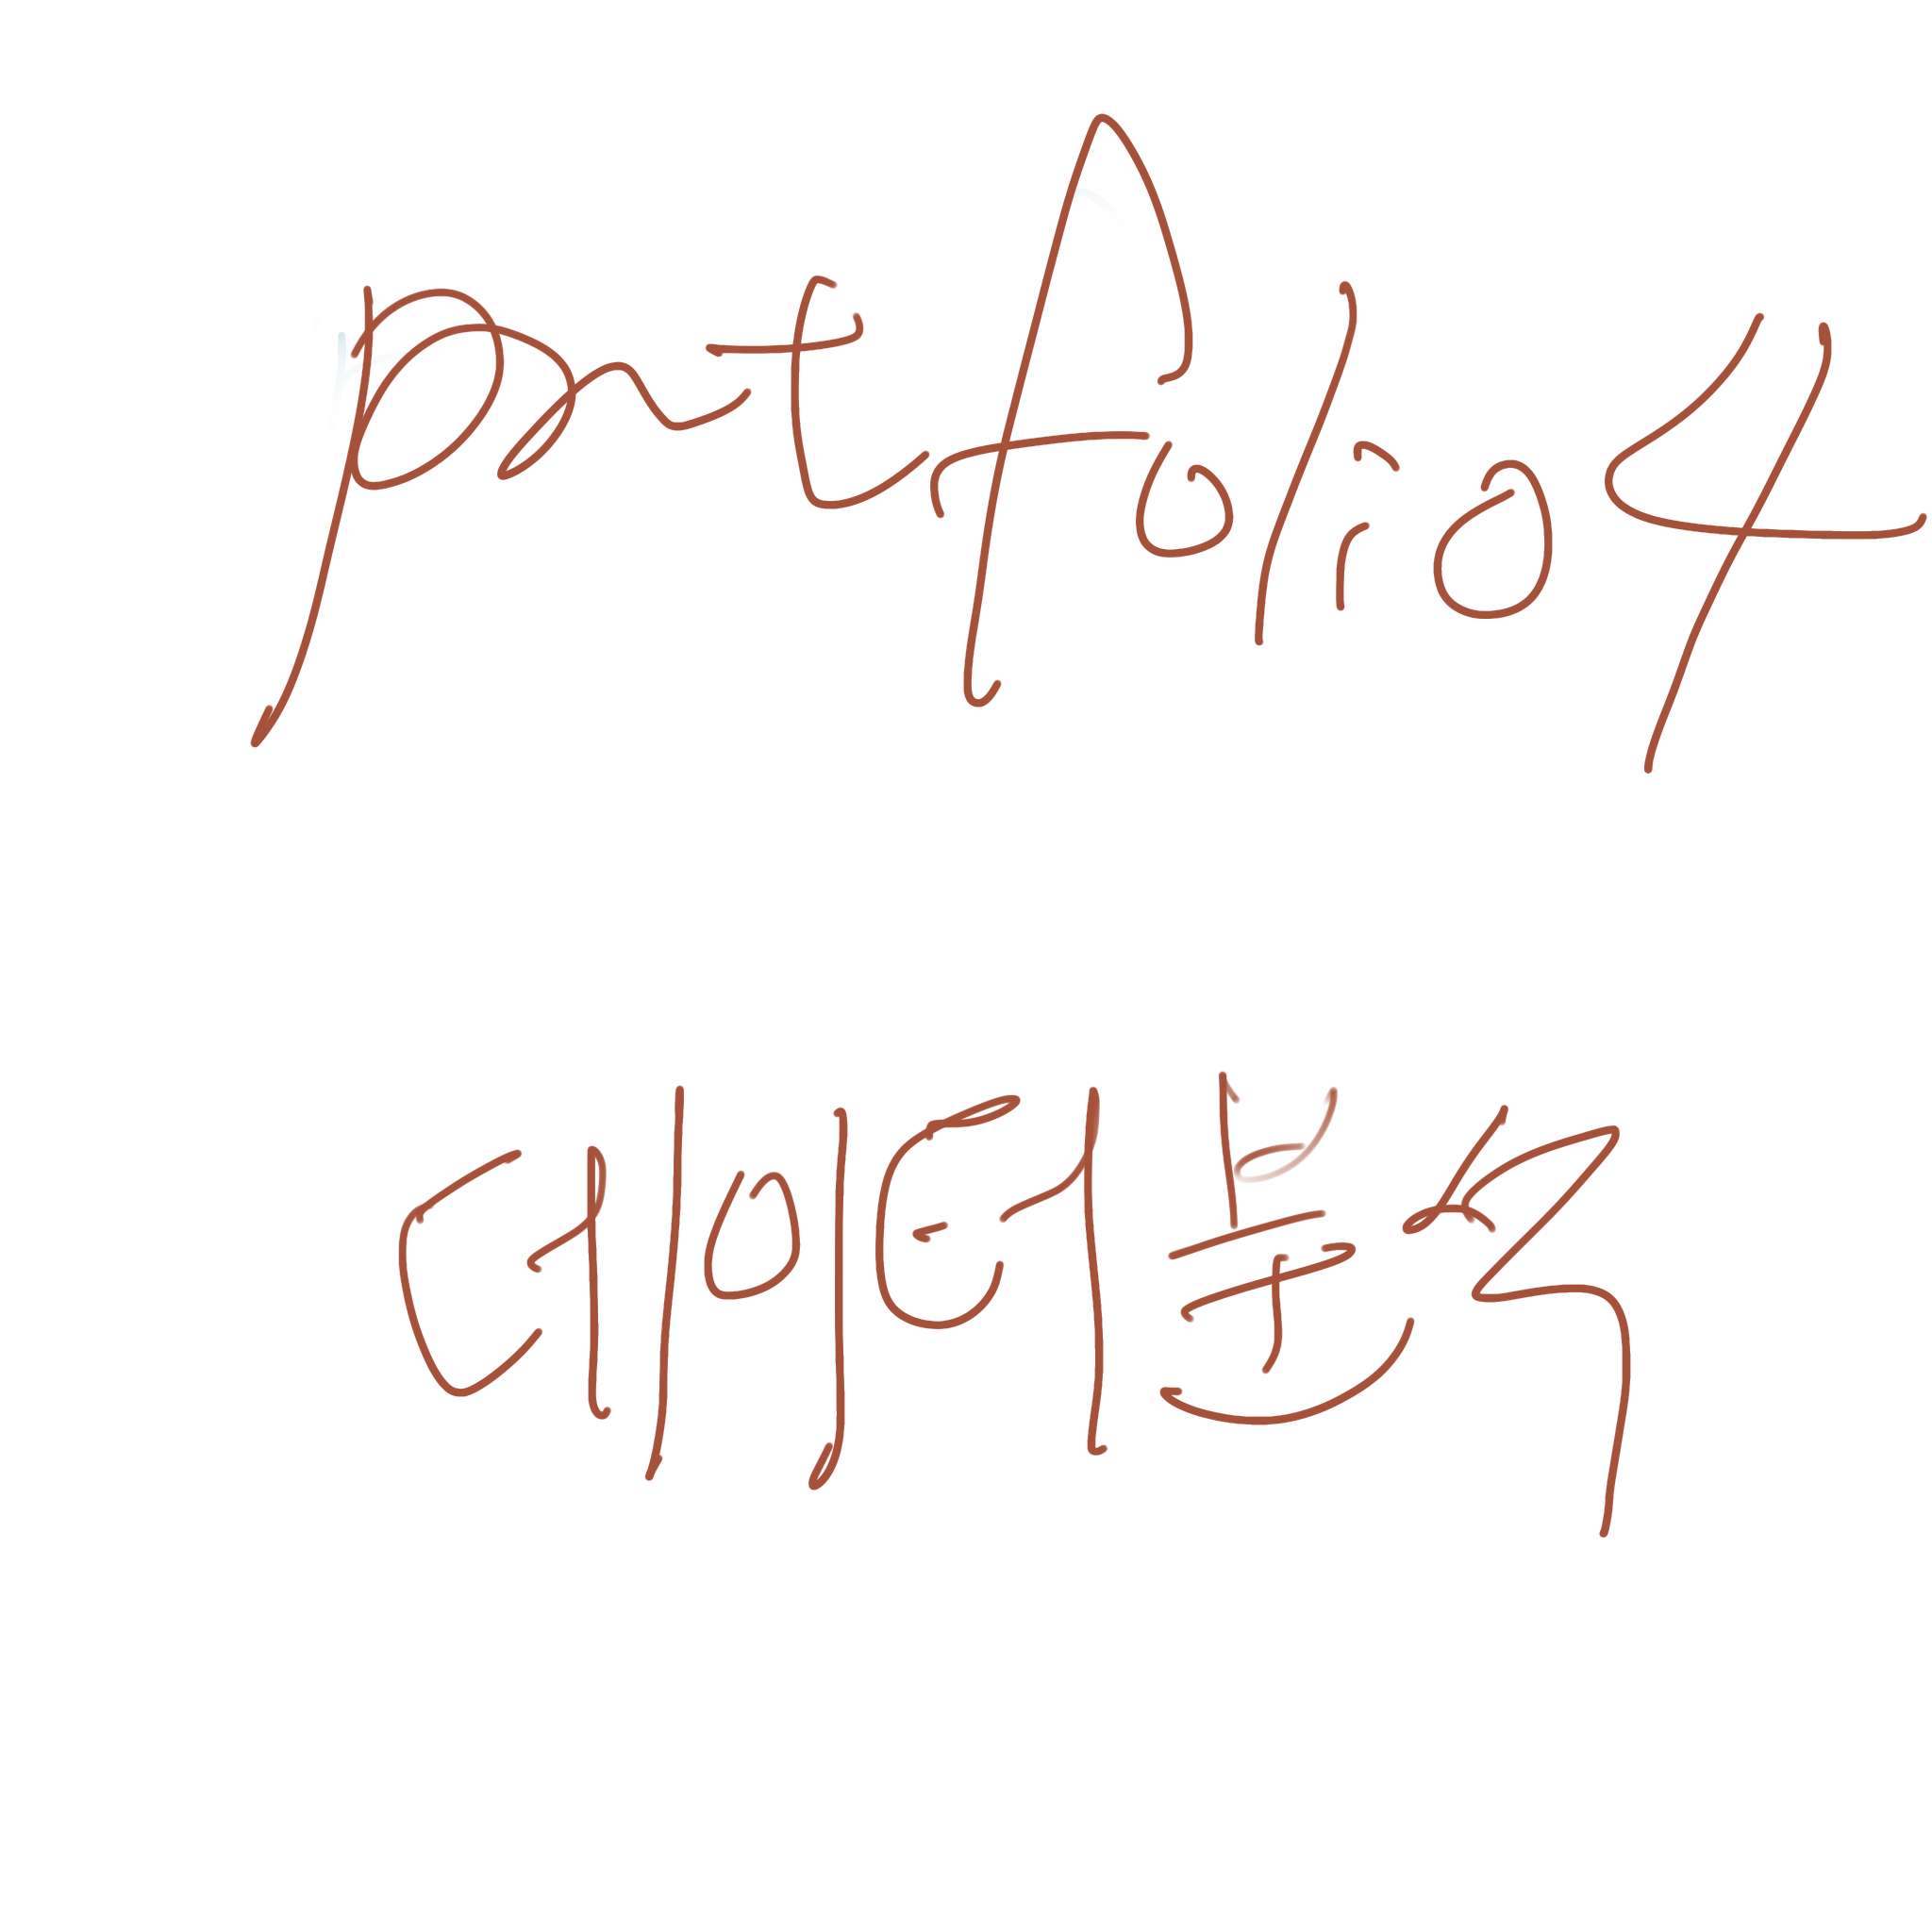 portfolio 4
데이터분석